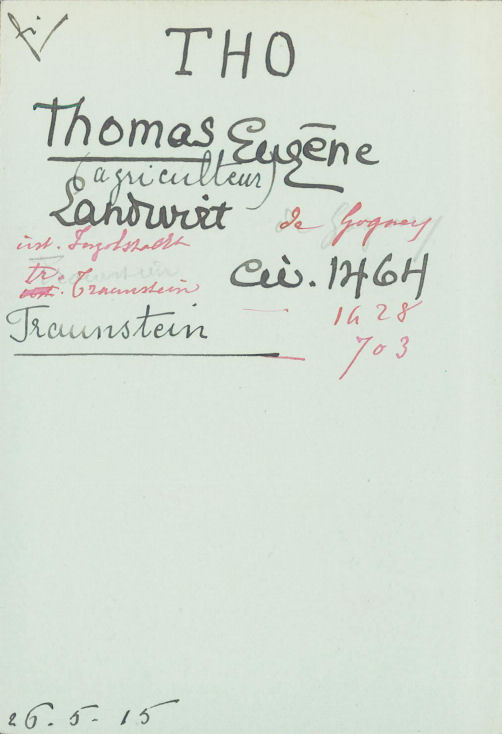 fi
THO
Thomas Eugène
(agriculteur)
Landwirt de Gognies
int. Ingolstadt
tr. Traunstein civ. 1464
Traunstein 1628
703
26.5.15